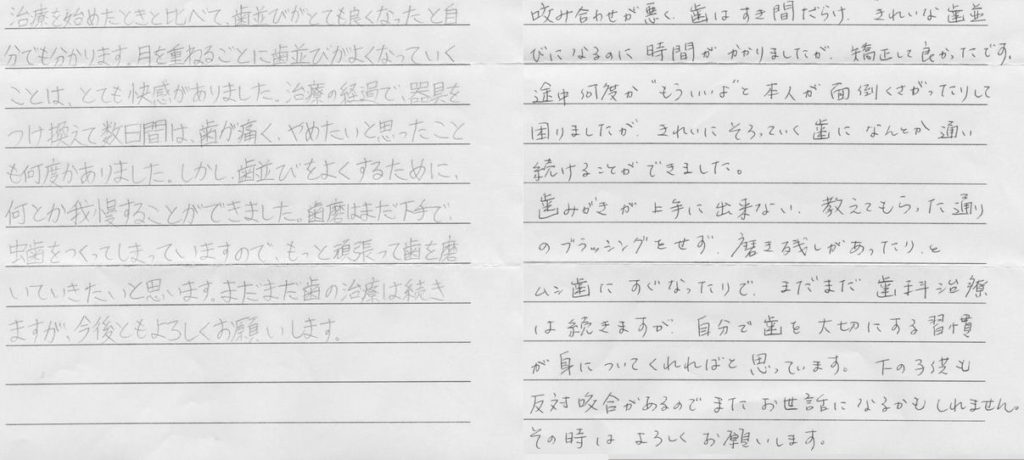 治療を始めたときと比べて、歯並びがとても良くなったと自
分でも分かります。月を重ねるごとに歯並びがよくなっていく
ことは、とても快感がありました。治療の経過で、器具を
つけ換えて数日間は、歯が痛く、やめたいと思ったこと
も何度かありました。しかし、歯並びをよくするために、
何とか我慢することができました。歯磨はまだ下手で、
虫歯をつくってしまっていますので、もっと頑張って歯を磨
いていきたいと思います。まだまだ歯の治療は続き
ますが、今後ともよろしくお願いします。
咬み合わせが悪く、歯はすき間だらけ、きれいな歯並
びになるのに時間がかかりましたが、矯正して良かったです。
途中何度か"もういいよ"と本人が面倒くさがったりして
困りましたが、きれいにそろっていく歯になんとか通い
続けることができました。
歯みがきが上手に出来ない、教えてもらった通り
のブラッシングをせず、磨き残しがあったり、と
ムシ歯にすぐなったりで、まだまだ歯科治療
は続きますが、自分で歯を大切にする習慣
が身についてくれればと思っています。下の子供も
反対咬合があるのでまたお世話になるかもしれません。
その時はよろしくお願いします。